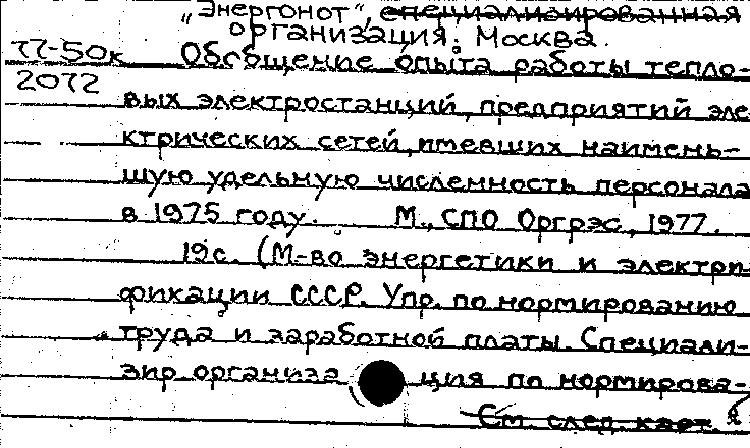 „Энергонот“, специализированная
организация. Москва.
77-50к Обобщение опыта работы тепло-
2072 вых электростанций, предприятий эле
ктрических сетей, имевших наимень-
шую удельную численность персонала
в 1975 году. М., СПО Оргрэс, 1977.
19с. (М-во энергетики и электри
фикации СССР. Упр. по нормированию
труда и заработной платы. Специали-
зир организа ция по нормирова-
См. след. карт.